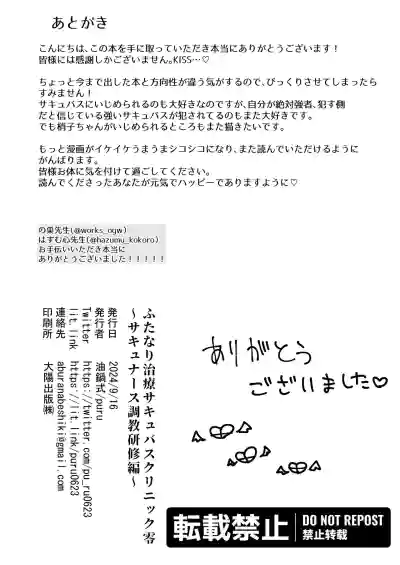 あとがき
こんにちは、この本を手に取っていただき本当にありがとうございます！
皆様には感謝しかございません。KISS…♡
ちょっと今まで出した本と方向性が違う気がするので、びっくりさせてしまったら
すみません！
サキュバスにいじめられるのも大好きなのですが、自分が絶対強者、犯す側
だと信じている強いサキュバスが犯されてるのもまた大好きです。
でも梢子ちゃんがいじめられるところもまた描きたいです。
もっと漫画がイケイケうまうまシコシコになり、また読んでいただけるように
がんばります。
皆様お体に気を付けて過ごしてください。
読んでくださったあなたが元気でハッピーでありますように♡
の巣先生(@works_ogw)
はずむ心先生(@hazumu_kokoro)
お手伝いいただき本当に
ありがとうございました！！！！！
ふたなり治療サキュバスクリニック零
～サキュナース調教研修編～
発行日 2024/9/16
発行者 油鍋式/puru
Twitter https://twitter.com/pu_ru0623
lit.link https://lit.link/puru0623
連絡先 aburanabeshiki@gmail.com
印刷所 大陽出版㈱
ありがとう
ございました♡
転載禁止
DO NOT REPOST
禁止转载